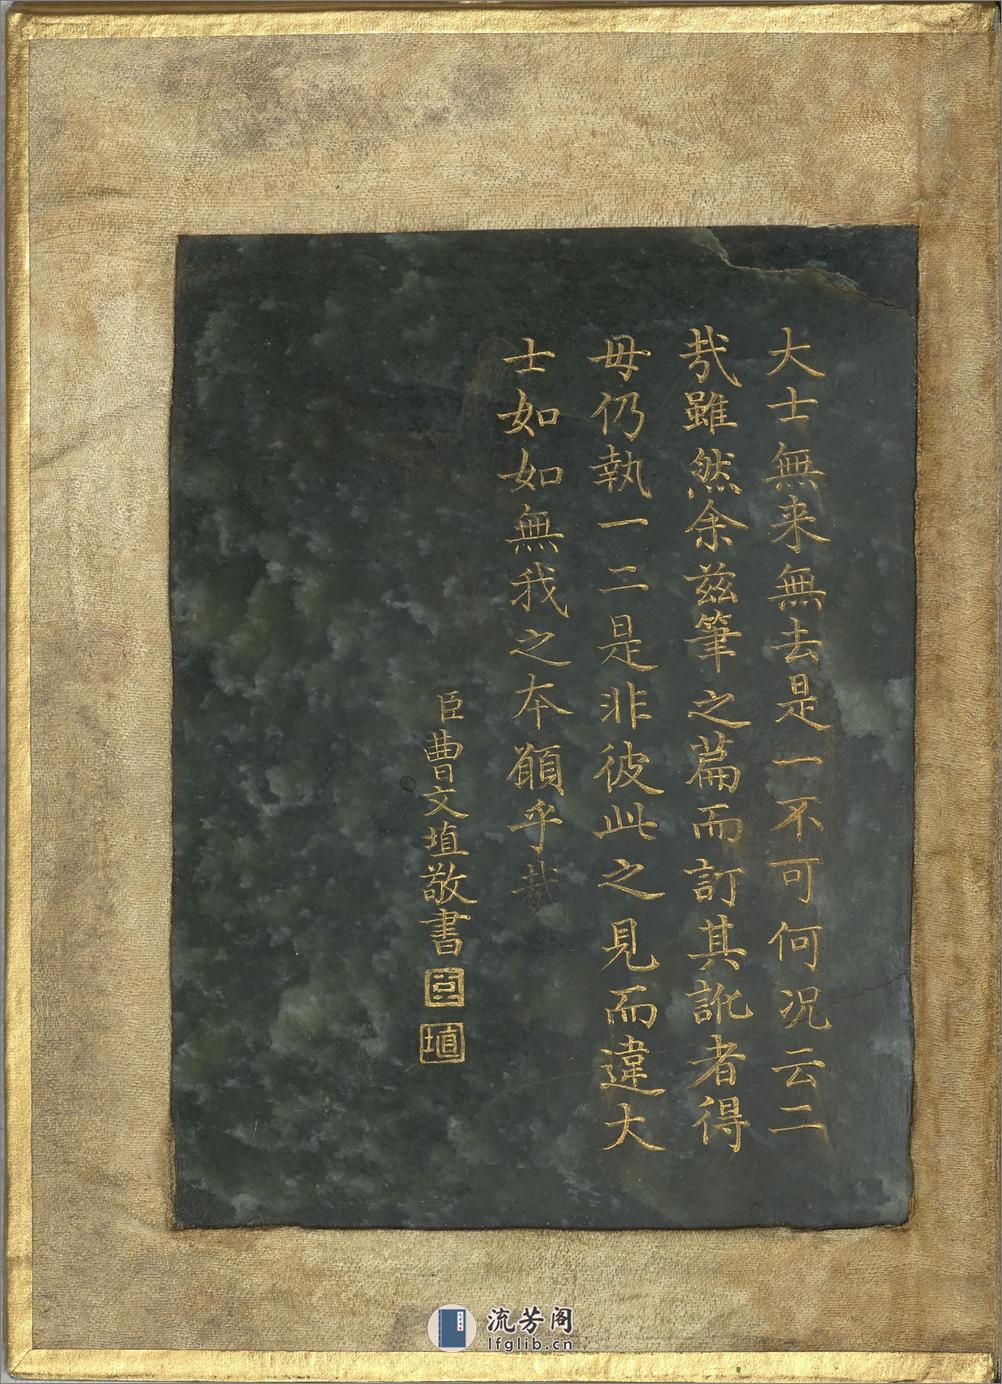 大士無来無去是一不可何况云二
㢤雖然余茲筆之萹而訂其訛者得
毋仍執一二是非彼此之見而違大
士如如無我之本願乎㢤
臣曹文埴敬書
臣
埴
流芳阁
lfglib.cn